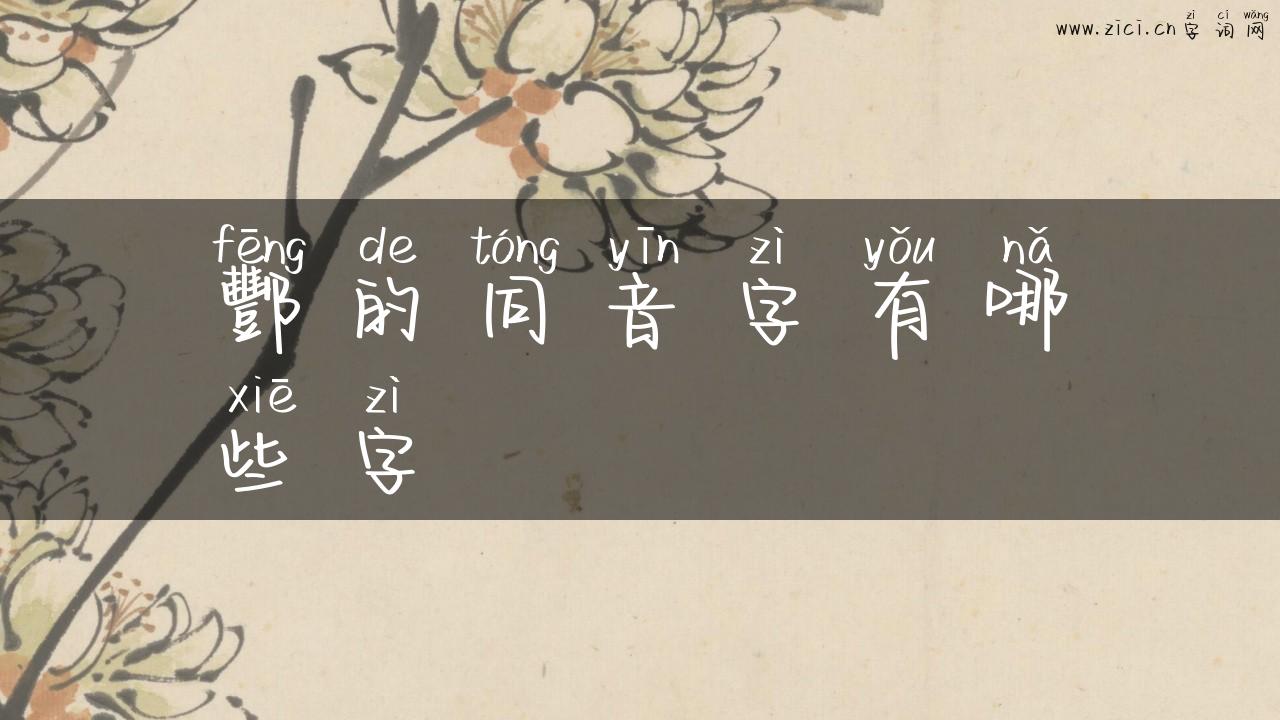 www.zici.cn 字词网
zì cí wǎng
fēng de tóng yīn zì yǒu nǎ
酆的同音字有哪
xiē zì
些字